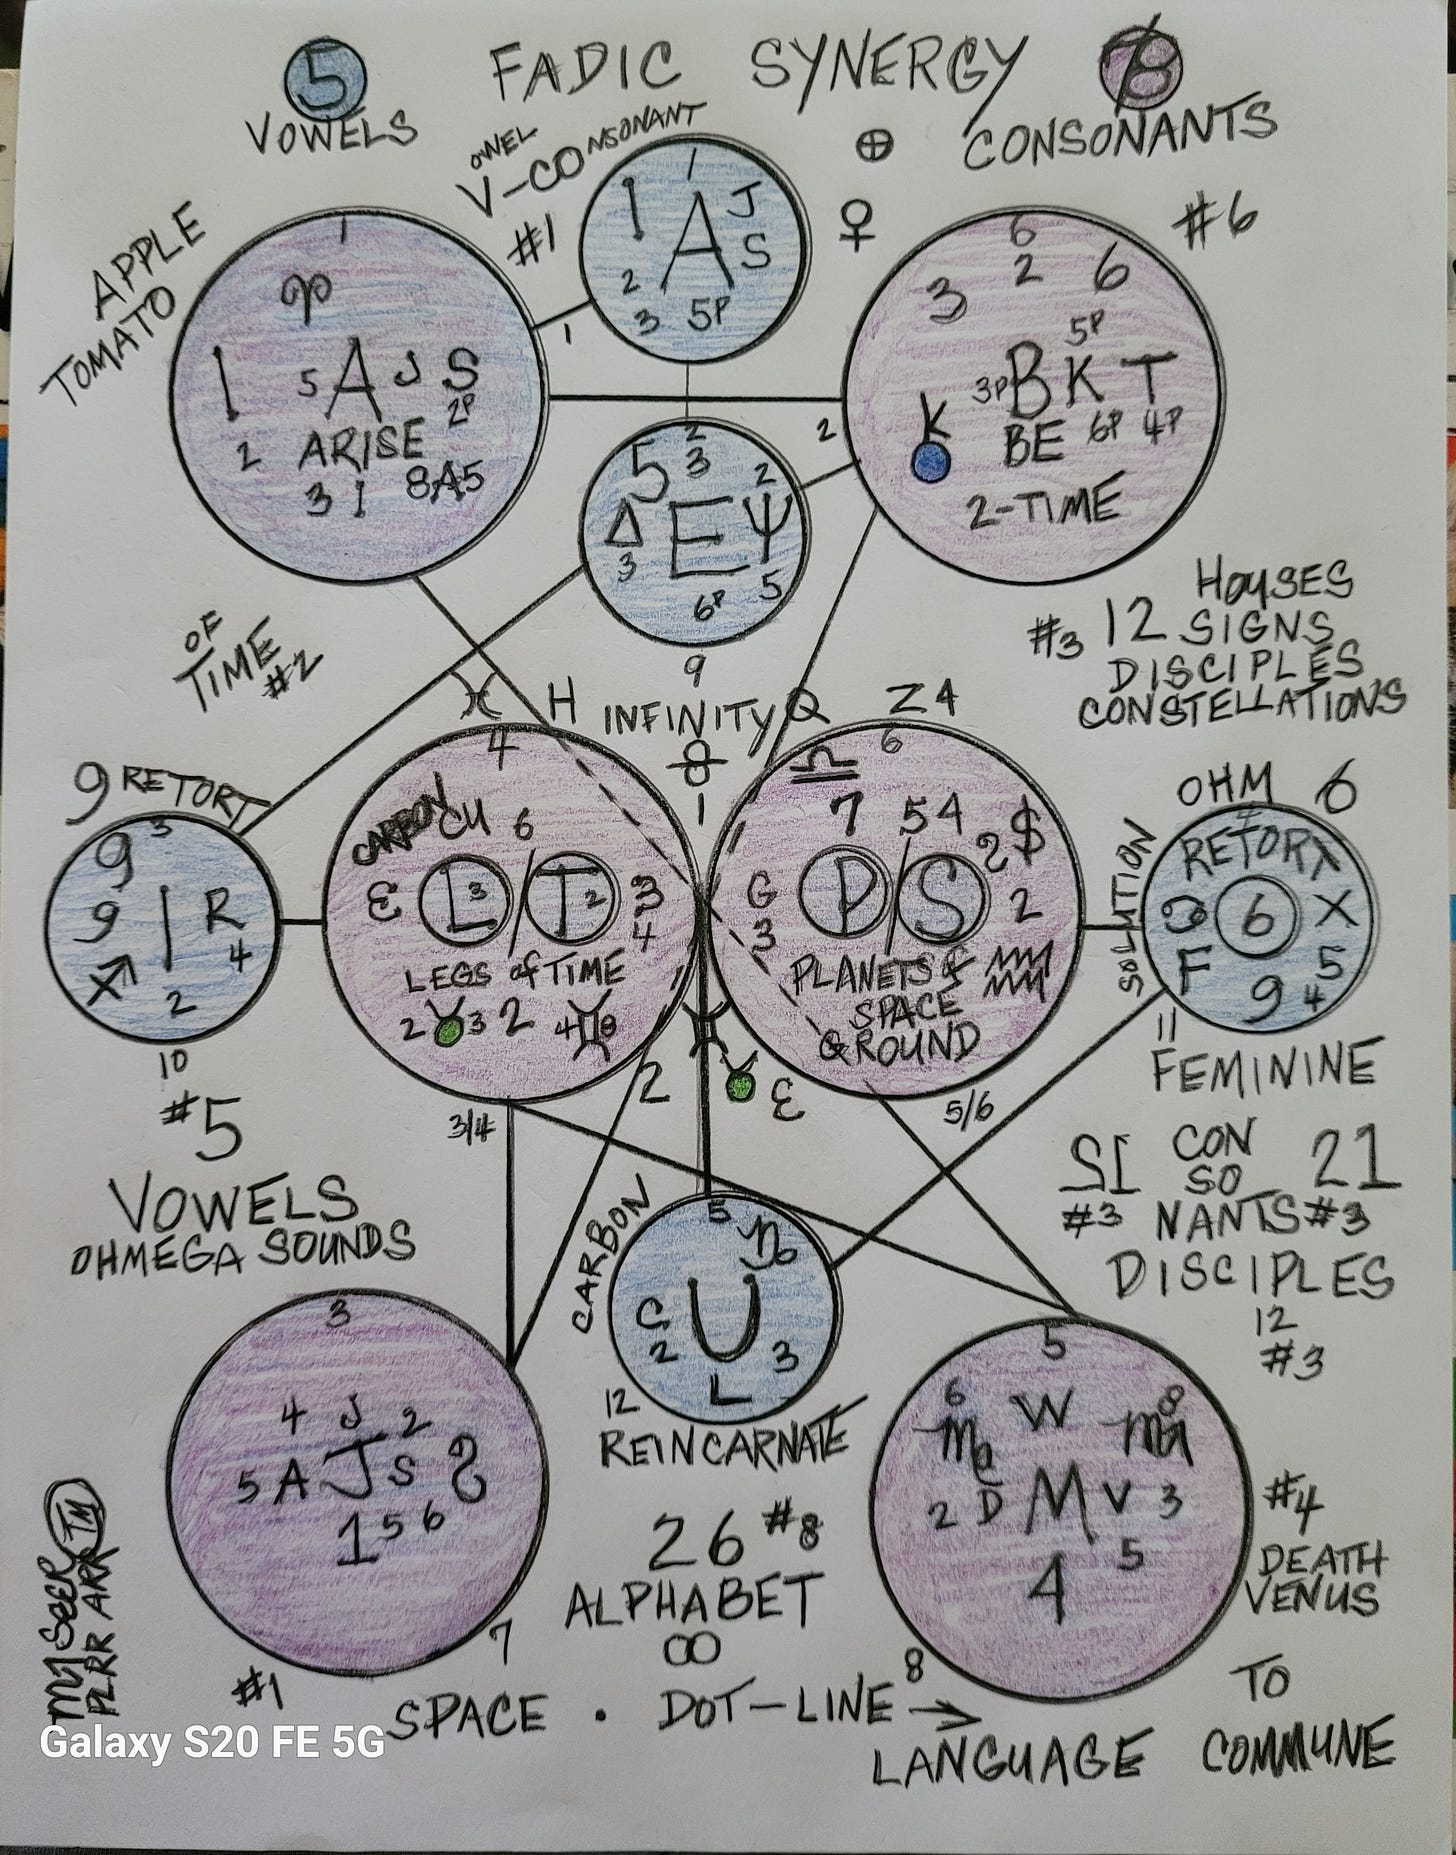 5 FADIC SYNERGY
VOWELS CONSONANTS
VOWEL
V-CONSONANT
#1
1
I A J
2 S
3 5P
APPLE
TOMATO
1
♈
I 5 A J S
2P
2 ARISE
3 I 8A5
1
⊕
♀
#6
6
3 2 6
5P
3P B K T
K BE 6P 4P
2-TIME
2
2
5 3 2
Δ E Ψ
3 5
6P
9
INFINITY
8
1
OF
TIME
#2
#3 12 HOUSES
SIGNS
DISCIPLES
CONSTELLATIONS
9 RETORT
3
9
9 I R
♐ 4
2
10
#5
VOWELS
OHMEGA SOUNDS
♓ H
4
CARBON CU 6
Ɛ L 3 / T 2 3
4
LEGS of TIME
2 ♉ 3 2 4 ♊ 8
3/4
2
Q Z 4
♎ 6
7 5 4 $
G P / S 2 2
3
PLANETS of
SPACE
GROUND
5/6
♓
♉ Ɛ
OHM 6
SOLUTION
RETORT
6 X
F 9 5
4
11
FEMININE
CON 21
SO
#3 NANTS #3
DISCIPLES
12
#3
CARBON
5
♑
C U
2 3
L
12
REINCARNATE
3
4 J 2
5 A J S
1 5 6
7
#1
5
6 W 8
♍
2 D M V 3
4 5
8
#4
DEATH
VENUS
26 #8
ALPHABET
∞
SPACE . DOT-LINE →
LANGUAGE TO
COMMUNE
SEER TM
PLRR ARK
Galaxy S20 FE 5G